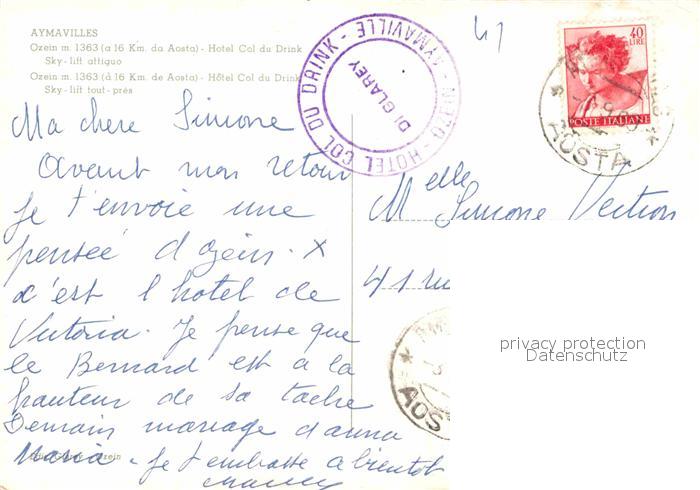 AYMAVILLES
Ozein m. 1363 (a 16 Km. da Aosta) - Hotel Col du Drink
Sky-lift attiguo
Ozein m. 1363 (à 16 Km. de Aosta) - Hôtel Col du Drink
Sky-lift tout-près
MOTO-HOTEL COL DU DRINK - AYMAVILLE -
DI GLAREY
41
40
LIRE
POSTE ITALIANE
AOSTA
Ma chere Simone
avant mon retour
Je t'envoie une
pensée d'ozein. x
c'est l hotel de
Victoria. Je pense que
le Bernard est a la
hauteur de sa tache
Demain mariage d'anna
Maria - Je t embrasse a bientot
Melle Simone
41 ru
AOS
privacy protection
Datenschutz